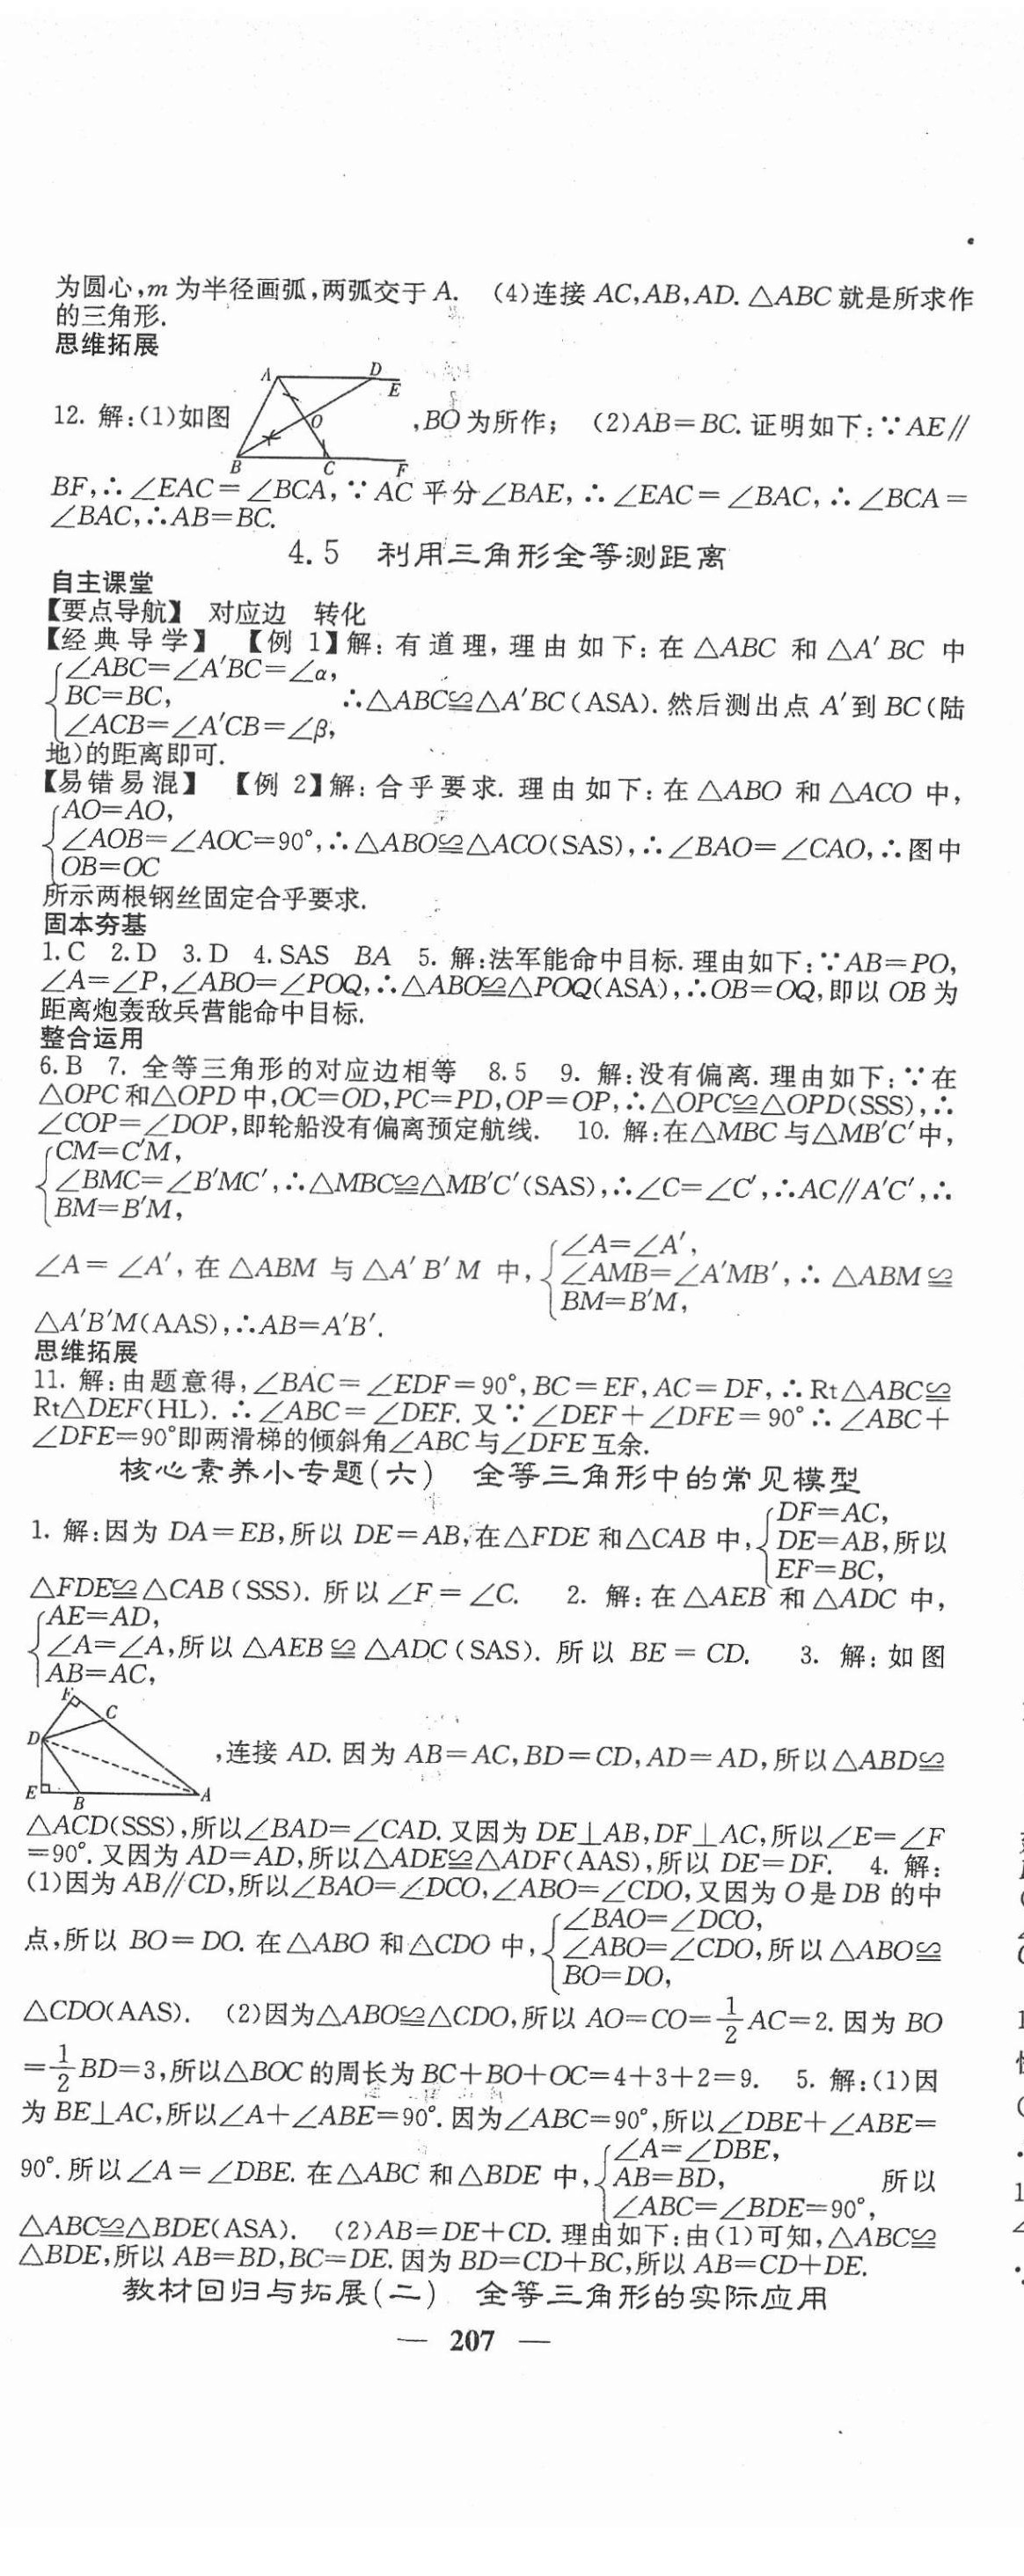 为圆心,m 为半径画弧,两弧交于 A. (4)连接 AC,AB,AD. △ABC 就是所求作
的三角形.
思维拓展
A D E
12. 解:(1)如图 O ,BO 为所作; (2)AB=BC. 证明如下:∵AE∥
B C F
BF,∴∠EAC=∠BCA,∵AC 平分∠BAE,∴∠EAC=∠BAC,∴∠BCA=
∠BAC,∴AB=BC.
4.5 利用三角形全等测距离
自主课堂
【要点导航】 对应边 转化
【经典导学】 【例 1】解:有道理,理由如下:在△ABC 和△A′BC 中
∠ABC=∠A′BC=∠α,
BC=BC, ∴△ABC≌△A′BC(ASA). 然后测出点 A′到 BC(陆
∠ACB=∠A′CB=∠β,
地)的距离即可.
【易错易混】 【例 2】解:合乎要求. 理由如下:在△ABO 和△ACO 中,
AO=AO,
∠AOB=∠AOC=90°,∴△ABO≌△ACO(SAS),∴∠BAO=∠CAO,∴图中
OB=OC
所示两根钢丝固定合乎要求.
固本夯基
1.C 2.D 3.D 4.SAS BA 5. 解:法军能命中目标. 理由如下:∵AB=PO,
∠A=∠P,∠ABO=∠POQ,∴△ABO≌△POQ(ASA),∴OB=OQ,即以 OB 为
距离炮轰敌兵营能命中目标.
整合运用
6.B 7. 全等三角形的对应边相等 8.5 9. 解:没有偏离. 理由如下:∵在
△OPC 和△OPD 中,OC=OD,PC=PD,OP=OP,∴△OPC≌△OPD(SSS),∴
∠COP=∠DOP,即轮船没有偏离预定航线. 10. 解:在△MBC 与△MB′C′中,
CM=C′M,
∠BMC=∠B′MC′,∴△MBC≌△MB′C′(SAS),∴∠C=∠C′,∴AC∥A′C′,∴
BM=B′M,
∠A=∠A′,
∠A=∠A′,在△ABM 与△A′B′M 中, ∠AMB=∠A′MB′,∴△ABM≌
BM=B′M,
△A′B′M(AAS),∴AB=A′B′.
思维拓展
11. 解:由题意得,∠BAC=∠EDF=90°,BC=EF,AC=DF,∴Rt△ABC≌
Rt△DEF(HL). ∴∠ABC=∠DEF. 又∵∠DEF+∠DFE=90°∴∠ABC+
∠DFE=90°即两滑梯的倾斜角∠ABC 与∠DFE 互余.
核心素养小专题(六) 全等三角形中的常见模型
DF=AC,
1. 解:因为 DA=EB,所以 DE=AB,在△FDE 和△CAB 中, DE=AB,所以
EF=BC,
△FDE≌△CAB(SSS). 所以∠F=∠C. 2. 解:在△AEB 和△ADC 中,
AE=AD,
∠A=∠A,所以△AEB≌△ADC(SAS). 所以 BE=CD. 3. 解:如图
AB=AC,
F C
D ,连接 AD. 因为 AB=AC,BD=CD,AD=AD,所以△ABD≌
E B A
△ACD(SSS),所以∠BAD=∠CAD. 又因为 DE⊥AB,DF⊥AC,所以∠E=∠F
=90°. 又因为 AD=AD,所以△ADE≌△ADF(AAS),所以 DE=DF. 4. 解:
(1)因为 AB∥CD,所以∠BAO=∠DCO,∠ABO=∠CDO,又因为 O 是 DB 的中
∠BAO=∠DCO,
点,所以 BO=DO. 在△ABO 和△CDO 中, ∠ABO=∠CDO,所以△ABO≌
BO=DO,
△CDO(AAS). (2)因为△ABO≌△CDO,所以 AO=CO=1/2 AC=2. 因为 BO
=1/2 BD=3,所以△BOC 的周长为 BC+BO+OC=4+3+2=9. 5. 解:(1)因
为 BE⊥AC,所以∠A+∠ABE=90°. 因为∠ABC=90°,所以∠DBE+∠ABE=
∠A=∠DBE,
90°. 所以∠A=∠DBE. 在△ABC 和△BDE 中, AB=BD, 所以
∠ABC=∠BDE=90°,
△ABC≌△BDE(ASA). (2)AB=DE+CD. 理由如下:由(1)可知,△ABC≌
△BDE,所以 AB=BD,BC=DE. 因为 BD=CD+BC,所以 AB=CD+DE.
教材回归与拓展(二) 全等三角形的实际应用
— 207 —